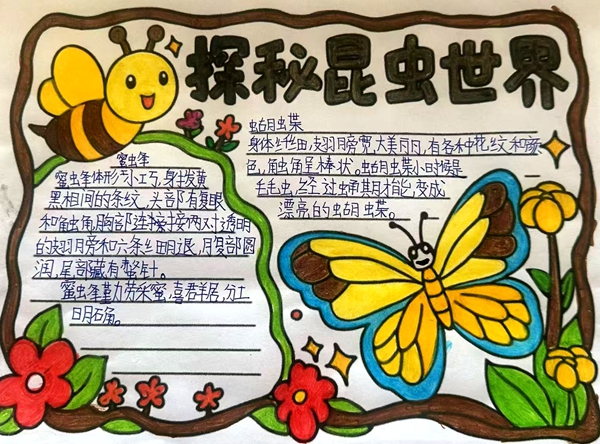 探秘昆虫世界
蝴蝶
身体纤细,翅膀宽大美丽,有各种花纹和颜
色,触角呈棒状。蝴蝶小时候是
毛毛虫,经过蛹期才能变成
漂亮的蝴蝶。
蜜蜂
蜜蜂体形小巧,身披黄
黑相间的条纹,头部有复眼
和触角,胸部连接着两对透明
的翅膀和六条细腿,腹部圆
润,尾部藏有螫针。
蜜蜂勤劳采蜜,喜群居,分工
明确。